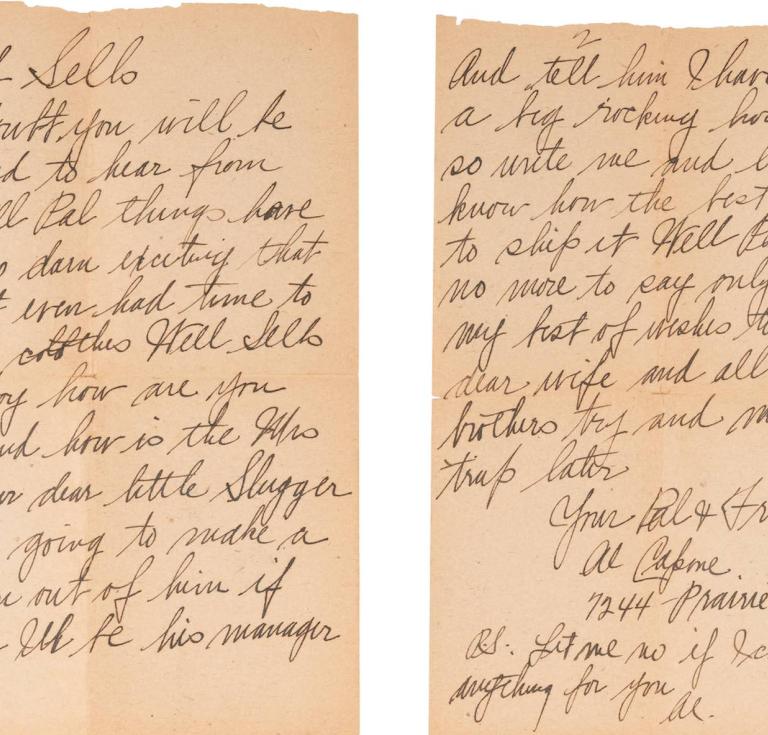 Sells
you will be
to hear from
Pal things have
darn exciting that
even had time to
Well Sells
how are you
how is the Mrs
dear little Slugger
going to make a
out of him if
I'll be his manager
2
And tell him I have
a big rocking
so write me and
know how the best
to ship it Well
no more to say only
my best of wishes
dear wife and all
brothers try and
trip later
Your Pal &
Al Capone
7244 Prairie
P.S. Let me no if I
anything for you
Al.